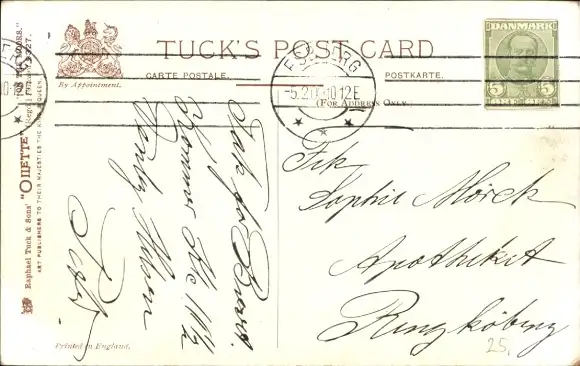 TUCK'S POST CARD
CARTE POSTALE.
POSTKARTE.
By Appointment.
(For Address Only.)
DANMARK
5 5
-5.2.10 10-12E
Raphael Tuck & Sons' "OILETTE"
ART PUBLISHERS TO THEIR MAJESTIES THE KING
QUEEN.
Tak for Brevet.
Kommer Kl. 11½
Venlig Hilsen
Frk
Sophie Mörck
Apotheket
Ringkøbing
25.
Printed in England.